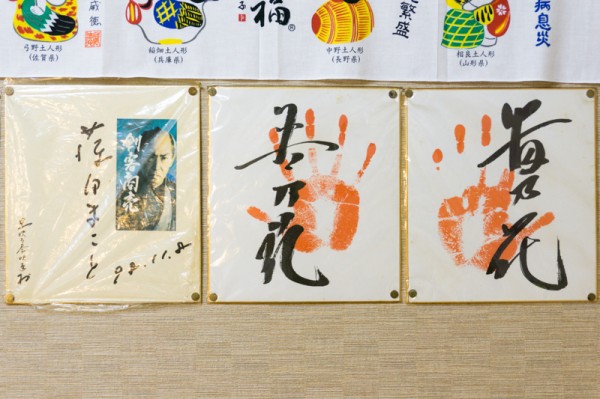 福®
繁盛
病息災
弓野土人形
(佐賀県)
稲畑土人形
(兵庫県)
中野土人形
(長野県)
相良土人形
(山形県)
藤田まこと
剣客商売
98.11.8
若乃花
貴乃花